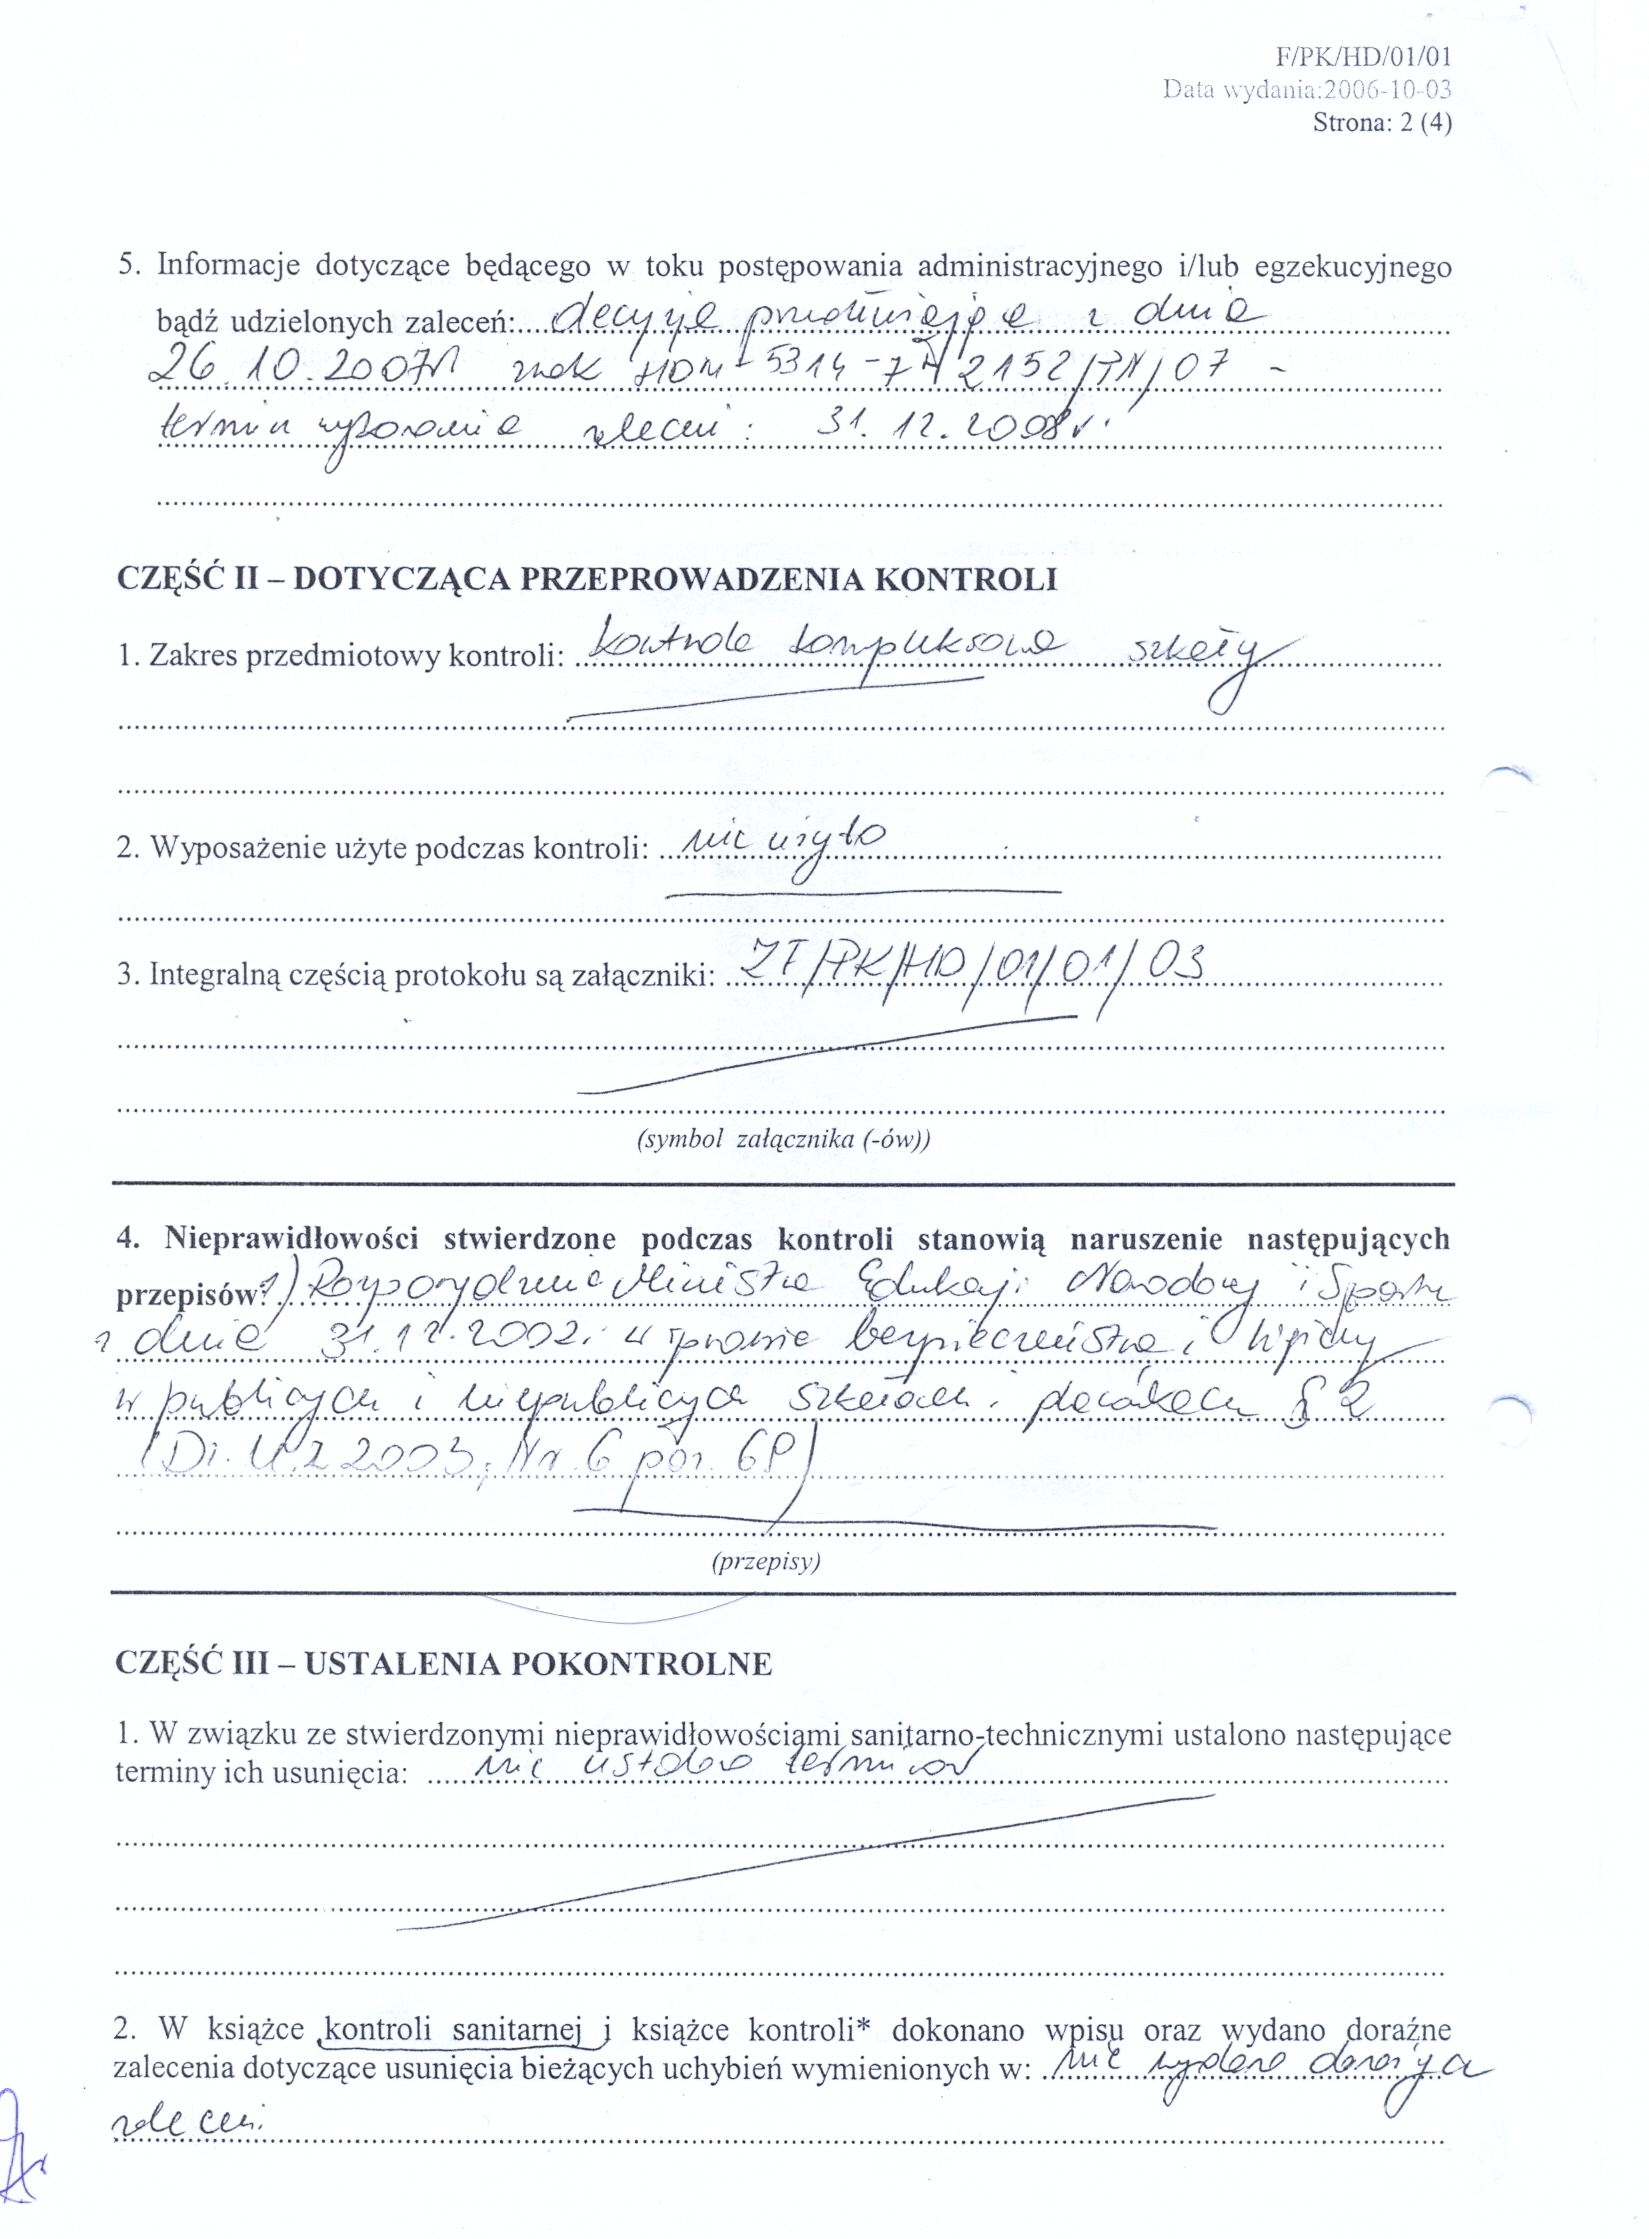 F/PK/HD/01/01
Data wydania:2006-10-03
Strona: 2 (4)
5. Informacje dotyczące będącego w toku postępowania administracyjnego i/lub egzekucyjnego
bądź udzielonych zaleceń: decyzja przedłużająca z dnia
26.10.2007r znak HDM-5314-7 2152/PN/07 -
termin wykonania zaleceń: 31.12.2008r.
CZĘŚĆ II – DOTYCZĄCA PRZEPROWADZENIA KONTROLI
1. Zakres przedmiotowy kontroli: kontrola kompleksowa szkoły
2. Wyposażenie użyte podczas kontroli: nie użyto
3. Integralną częścią protokołu są załączniki: ZF/PK/HD/01/01/03
(symbol załącznika (-ów))
4. Nieprawidłowości stwierdzone podczas kontroli stanowią naruszenie następujących
przepisów: 1) Rozporządzenie Ministra Edukacji Narodowej i Sportu
z dnia 31.12.2002. w sprawie bezpieczeństwa i higieny
w publicznych i niepublicznych szkołach i placówkach § 2
(Dz. U. z 2003, Nr 6 poz. 69)
(przepisy)
CZĘŚĆ III – USTALENIA POKONTROLNE
1. W związku ze stwierdzonymi nieprawidłowościami sanitarno-technicznymi ustalono następujące
terminy ich usunięcia: nie ustalono terminów
2. W książce kontroli sanitarnej i książce kontroli* dokonano wpisu oraz wydano doraźne
zalecenia dotyczące usunięcia bieżących uchybień wymienionych w: nie wydano doraźnych
zaleceń